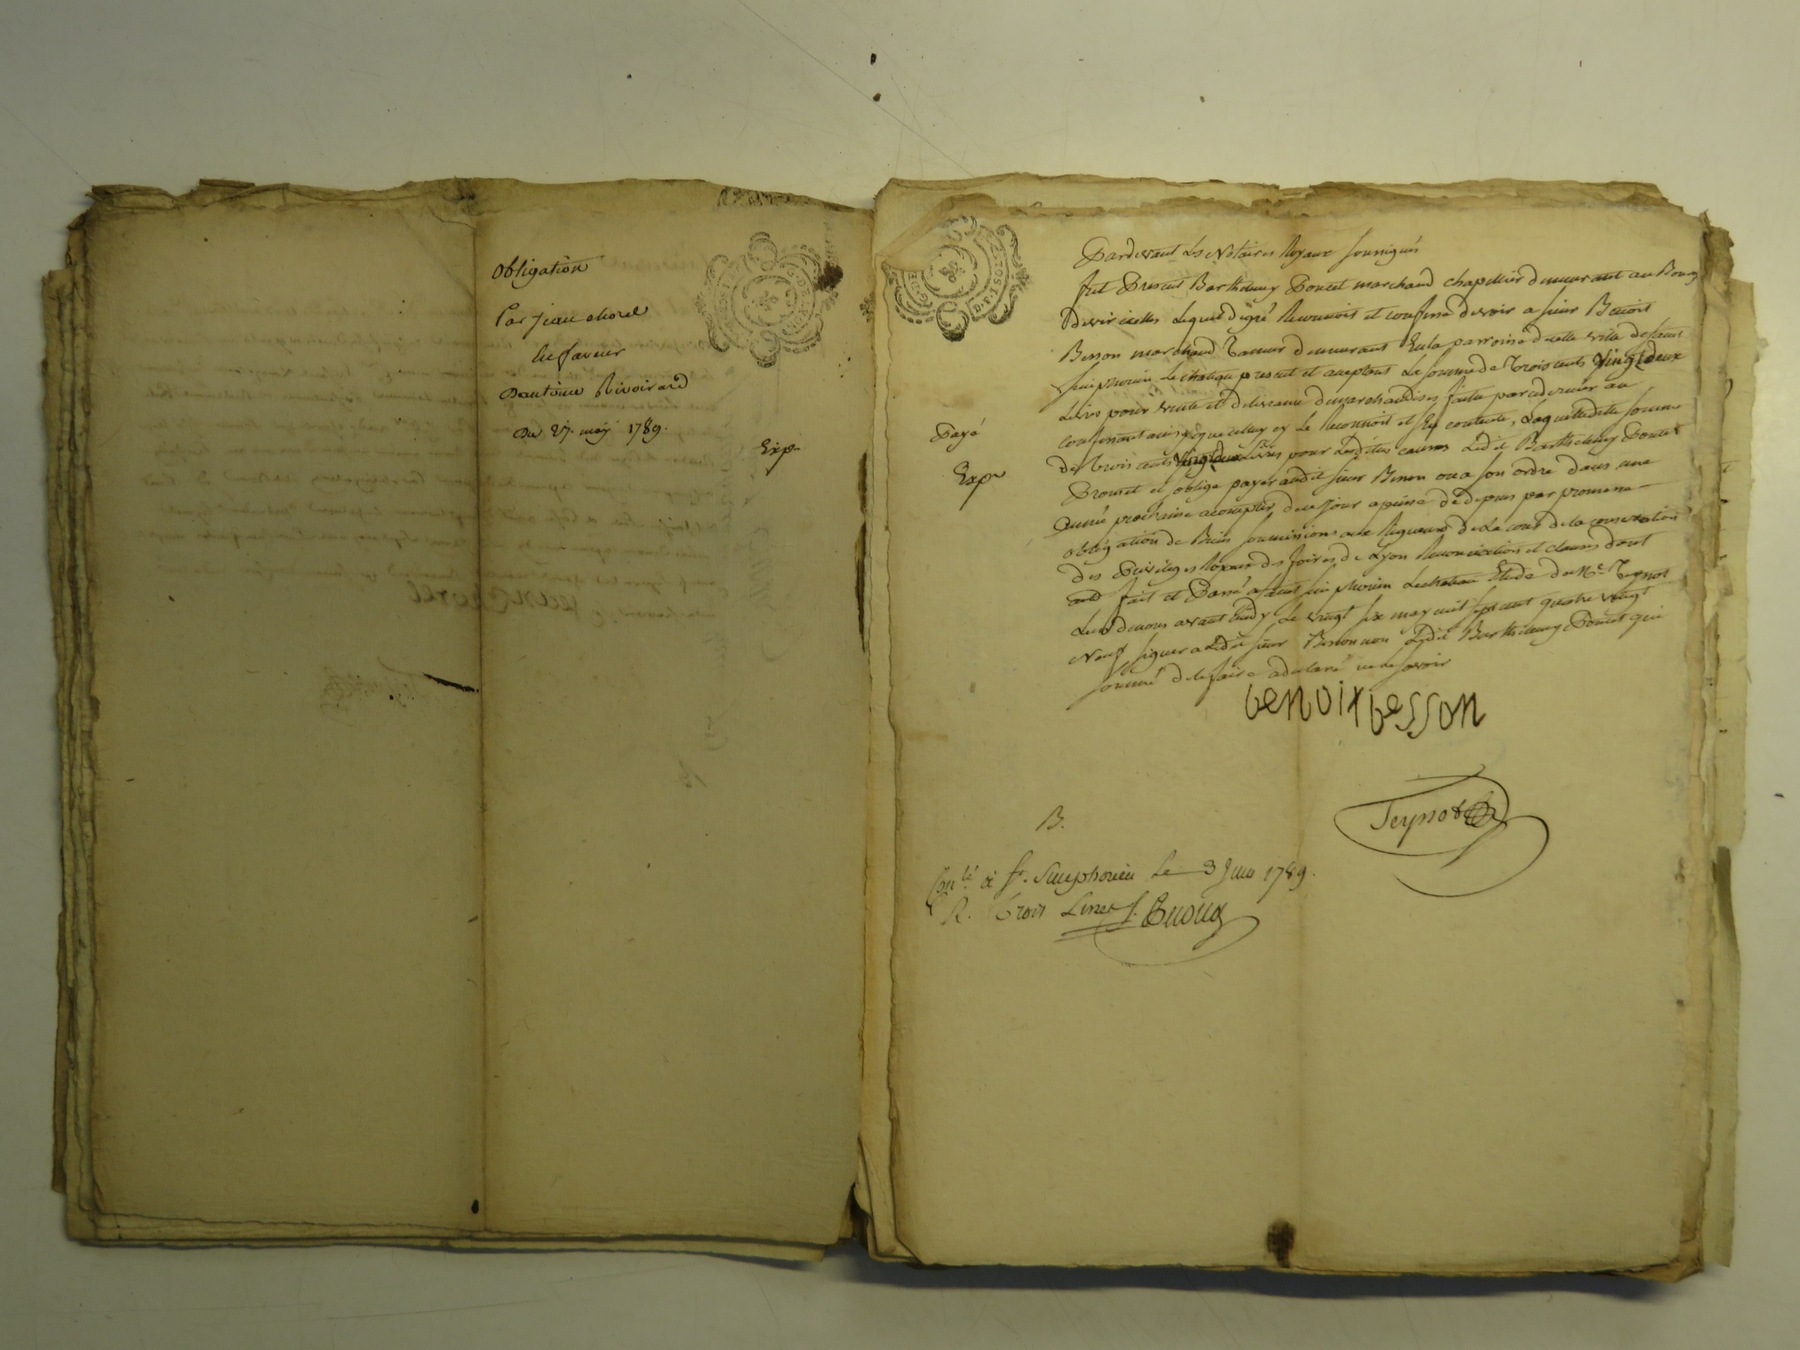 obligation
Par jean chorel
En faveur
Dantoine Rivoirard
Du 27. may 1789.
Exp
Pardevant Les Notaires Royaux soussignés
fut Present Barthelemy Poncet marchand chapellier demeurant au Bourg
de viricelles Lequel de gré Reconnoit et confesse devoir a sieur Benoit
Besson marchand Tanneur demeurant En la parroisse de cette ville de saint
simphorien Le chateau present et acceptant La somme de Trois cents vingt deux
Livres pour vente et delivrance de marchandises faitte par ce dernier au
confessant ainsi que celuy cy Le Reconnoit et s'en contente, Laquelle ditte somme
de trois cents vingt deux Livres pour Lesdittes causes Ledit Barthelemy Poncet
Promet et oblige payer audit sieur Besson ou a son ordre dans une
année prochaine a compter de ce jour a peine de depens par promesse
obligation de Biens soumissions aux Rigueurs de La cour de la conservation
des Privileges Royaux des foires de Lyon Renonciations et clauses dont
acte fait et Passé a saint simphorien Le chateau Etude de Me. Teynot
L'un de nous avant midy Le vingt six may mil sept cent quatre vingt
Neuf signer a Ledit sieur Besson non Ledit Barthelemy Poncet qui
sommé de le faire a declaré ne le savoir
Payé
Exp
benoit besson
Teynot
B.
Con.lé à St. Simphorien le 3 Juin 1789.
R. Trois Livres